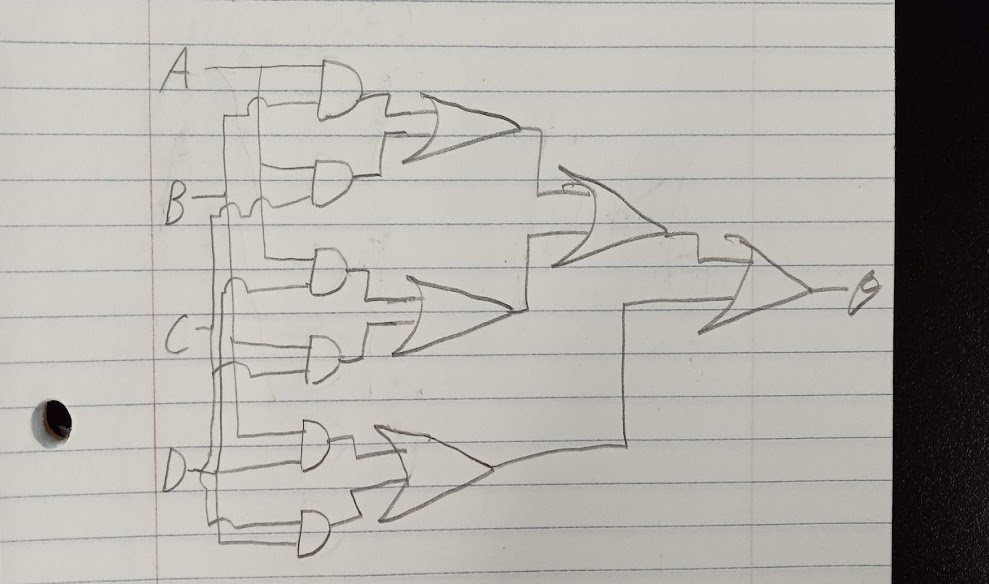 A
B
C
D
Q